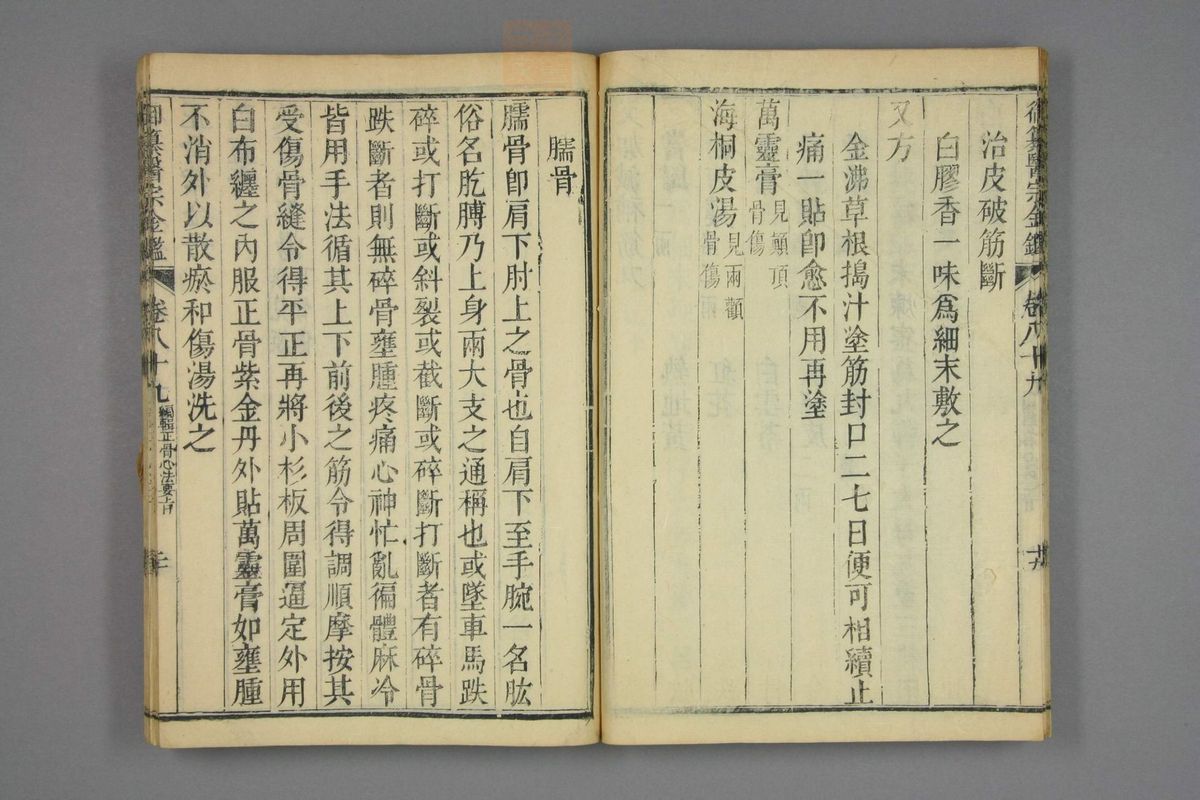 御纂醫宗金鑑 卷八十九
治皮破筋斷
白膠香一味爲細末敷之
又方
金沸草根搗汁塗筋封口二七日便可相續止
痛一貼卽愈不用再塗
萬靈膏見顚頂骨傷
海桐皮湯見兩顴骨傷
臑骨
臑骨卽肩下肘上之骨也自肩下至手腕一名肱
俗名肐膊乃上身兩大支之通稱也或墜車馬跌
碎或打斷或斜裂或截斷或碎斷打斷者有碎骨
跌斷者則無碎骨壅腫疼痛心神忙亂徧體麻冷
皆用手法循其上下前後之筋令得調順摩按其
受傷骨縫令得平正再將小杉板周圍逼定外用
白布纏之內服正骨紫金丹外貼萬靈膏如壅腫
不消外以散瘀和傷湯洗之
御纂醫宗金鑑 卷八十九 編輯正骨心法要旨